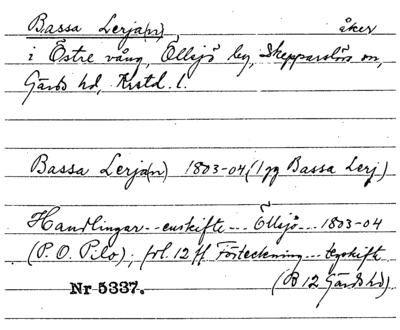 Bassa Lerja(n), åker
i Östre vång, Öllsjö by, Skepparslövs sn,
Gärds hd, Krstd. l.
Bassa Lerja(n) 1803-04 (1 gg Bassa Lerj)
Handlingar -- enskifte -- Öllsjö -- 1803-04
(P. O. Pilo), fol. 12 ff Förteckning -- egoskifte
Nr 5337. (B 12 Gärds hd)